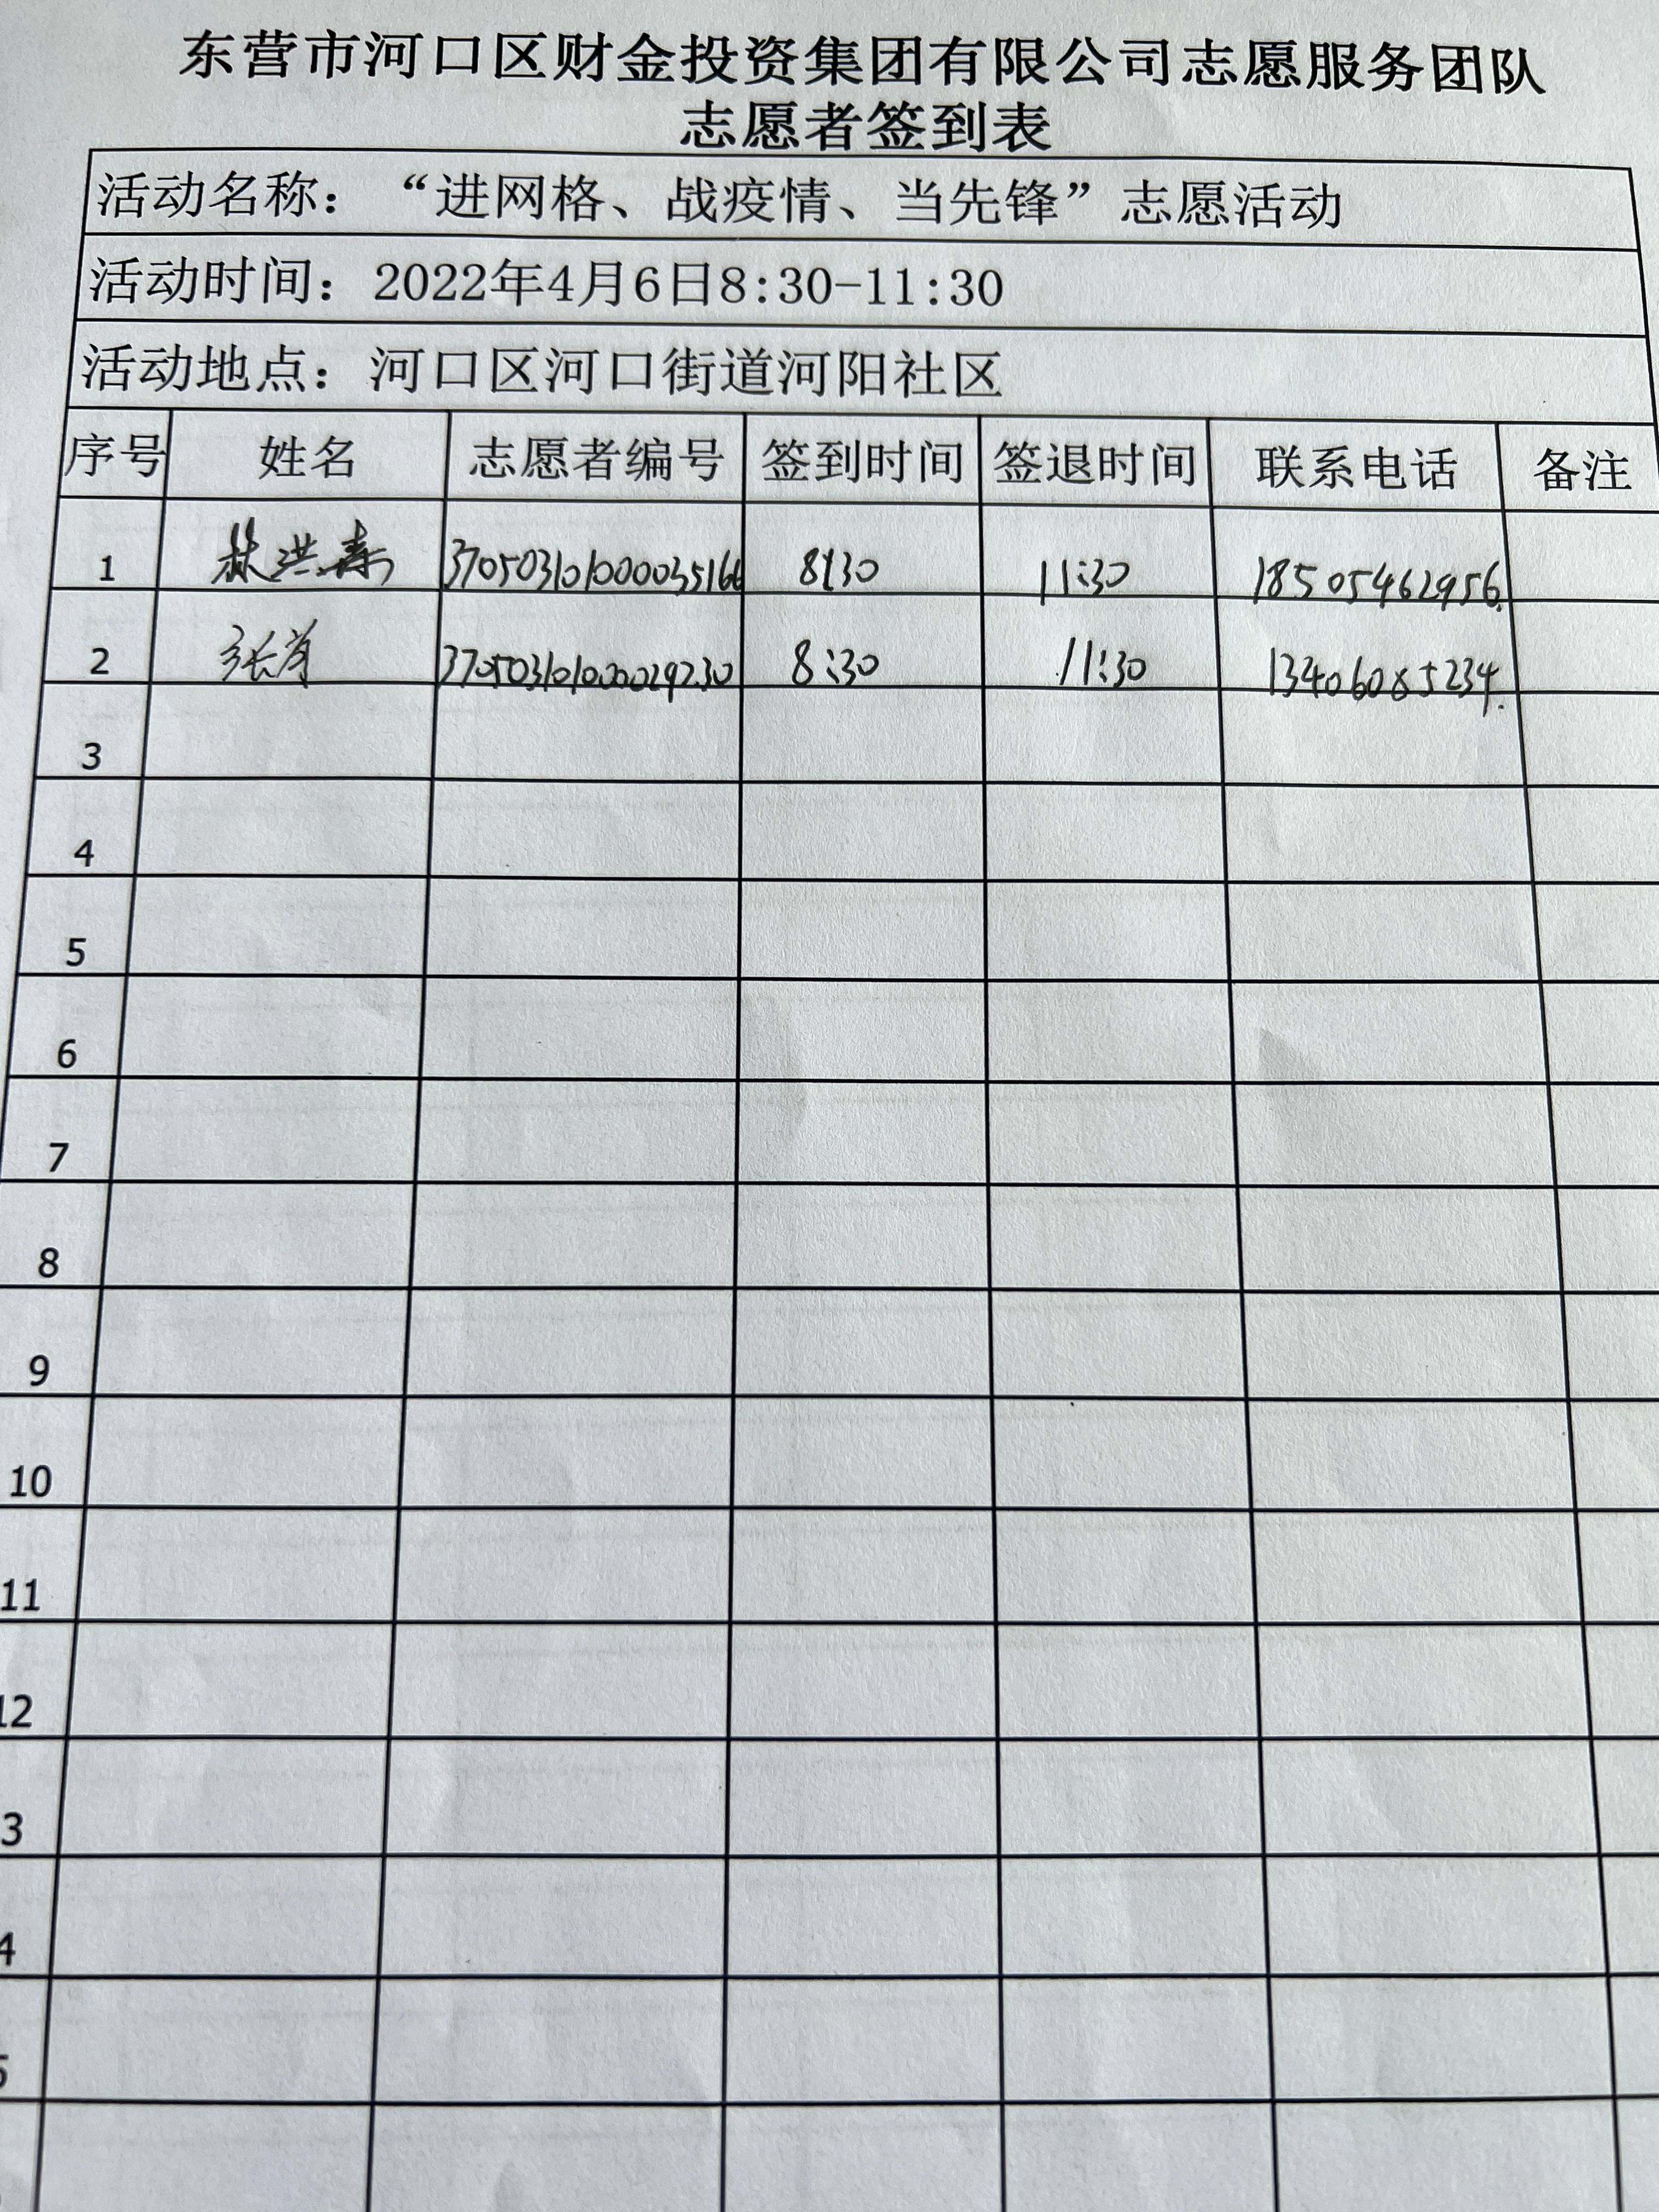 东营市河口区财金投资集团有限公司志愿服务团队
志愿者签到表
活动名称：“进网格、战疫情、当先锋”志愿活动
活动时间：2022年4月6日8:30-11:30
活动地点：河口区河口街道河阳社区
序号 姓名 志愿者编号 签到时间 签退时间 联系电话 备注
1 林洪寿 370503101000035166 8:30 11:30 18505462956.
2 张 370503101000029230 8:30 11:30 13406085234.
3
4
5
6
7
8
9
10
11
12
3
4
5